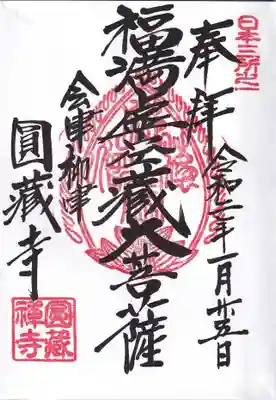 日本三所之一
奉拝
令和二年一月廿五日
福満虚空蔵大菩薩
会津柳津
圓藏寺
圓藏
禪寺